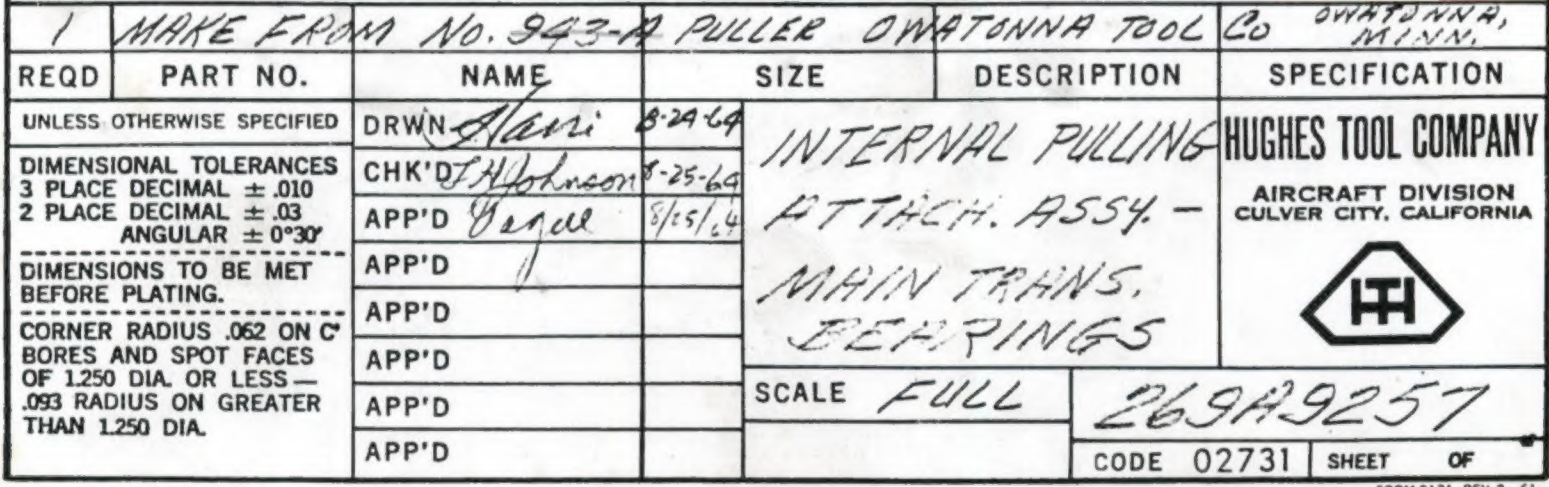 1 MAKE FROM No. 943-A PULLER OWATONNA TOOL Co OWATONNA, MINN.
REQD PART NO. NAME SIZE DESCRIPTION SPECIFICATION
UNLESS OTHERWISE SPECIFIED
DIMENSIONAL TOLERANCES
3 PLACE DECIMAL ± .010
2 PLACE DECIMAL ± .03
ANGULAR ± 0°30'
DIMENSIONS TO BE MET
BEFORE PLATING.
CORNER RADIUS .062 ON C'
BORES AND SPOT FACES
OF 1.250 DIA. OR LESS —
.093 RADIUS ON GREATER
THAN 1.250 DIA.
DRWN 8-24-64
CHK'D F H Johnson 8-25-64
APP'D 8/25/64
APP'D
APP'D
APP'D
APP'D
APP'D
INTERNAL PULLING
ATTACH. ASSY. —
MAIN TRANS.
BEARINGS
SCALE FULL
HUGHES TOOL COMPANY
AIRCRAFT DIVISION
CULVER CITY, CALIFORNIA
HT
269A9257
CODE 02731 SHEET OF